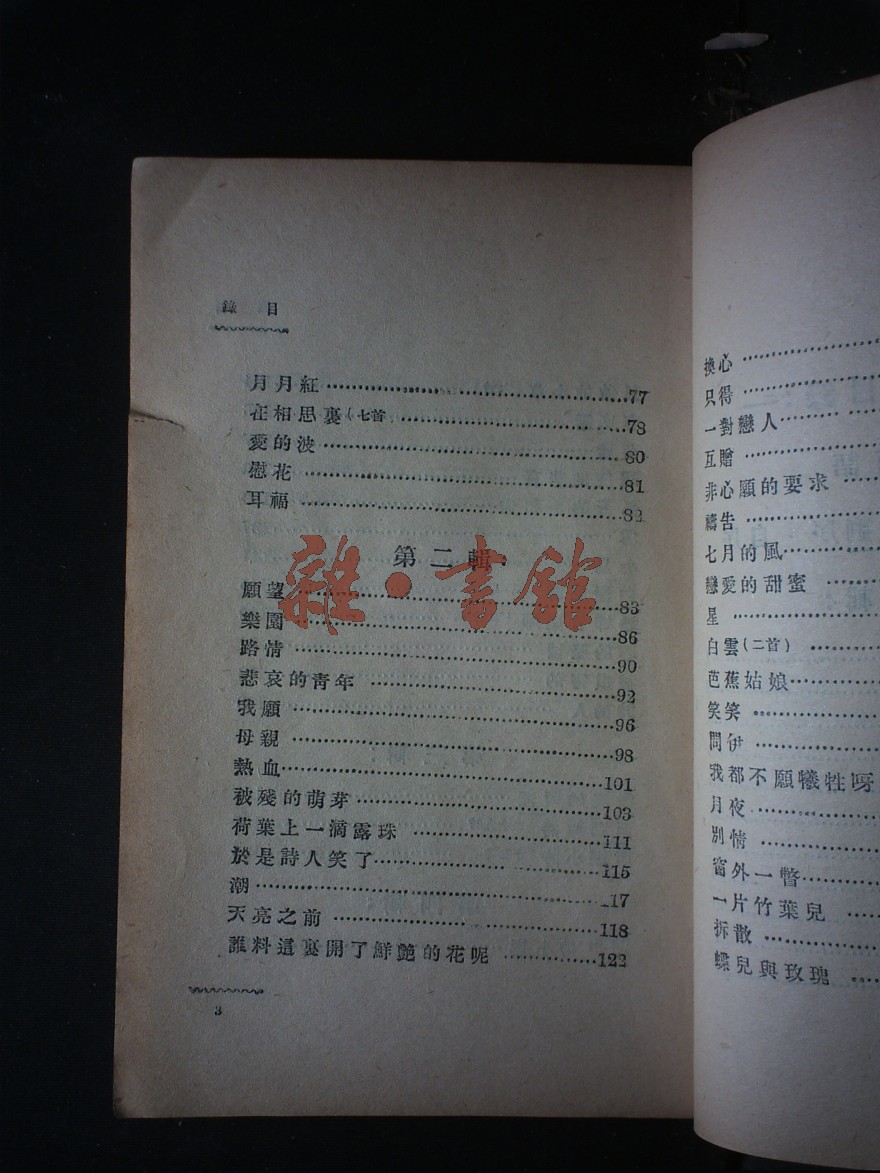 錄目
月月紅……77
在相思裏(七首……78
愛的波……80
慰花……81
耳福……82
第二輯
願望……83
樂園……86
路情……90
悲哀的青年……92
我願……96
母親……98
熱血……101
被殘的萌芽……103
荷葉上一滴露珠……111
於是詩人笑了……115
潮……117
天亮之前……118
誰料這裏開了鮮艷的花呢……122
3
雜·書館
換心……
只得……
一對戀人……
互贈……
非心願的要求……
禱告……
七月的風……
戀愛的甜蜜……
星……
白雲(二首)……
芭蕉姑娘……
笑笑……
問伊……
我都不願犧牲呀
月夜……
別情……
窗外一瞥……
一片竹葉兒……
拆散……
蝶兒與玫瑰……